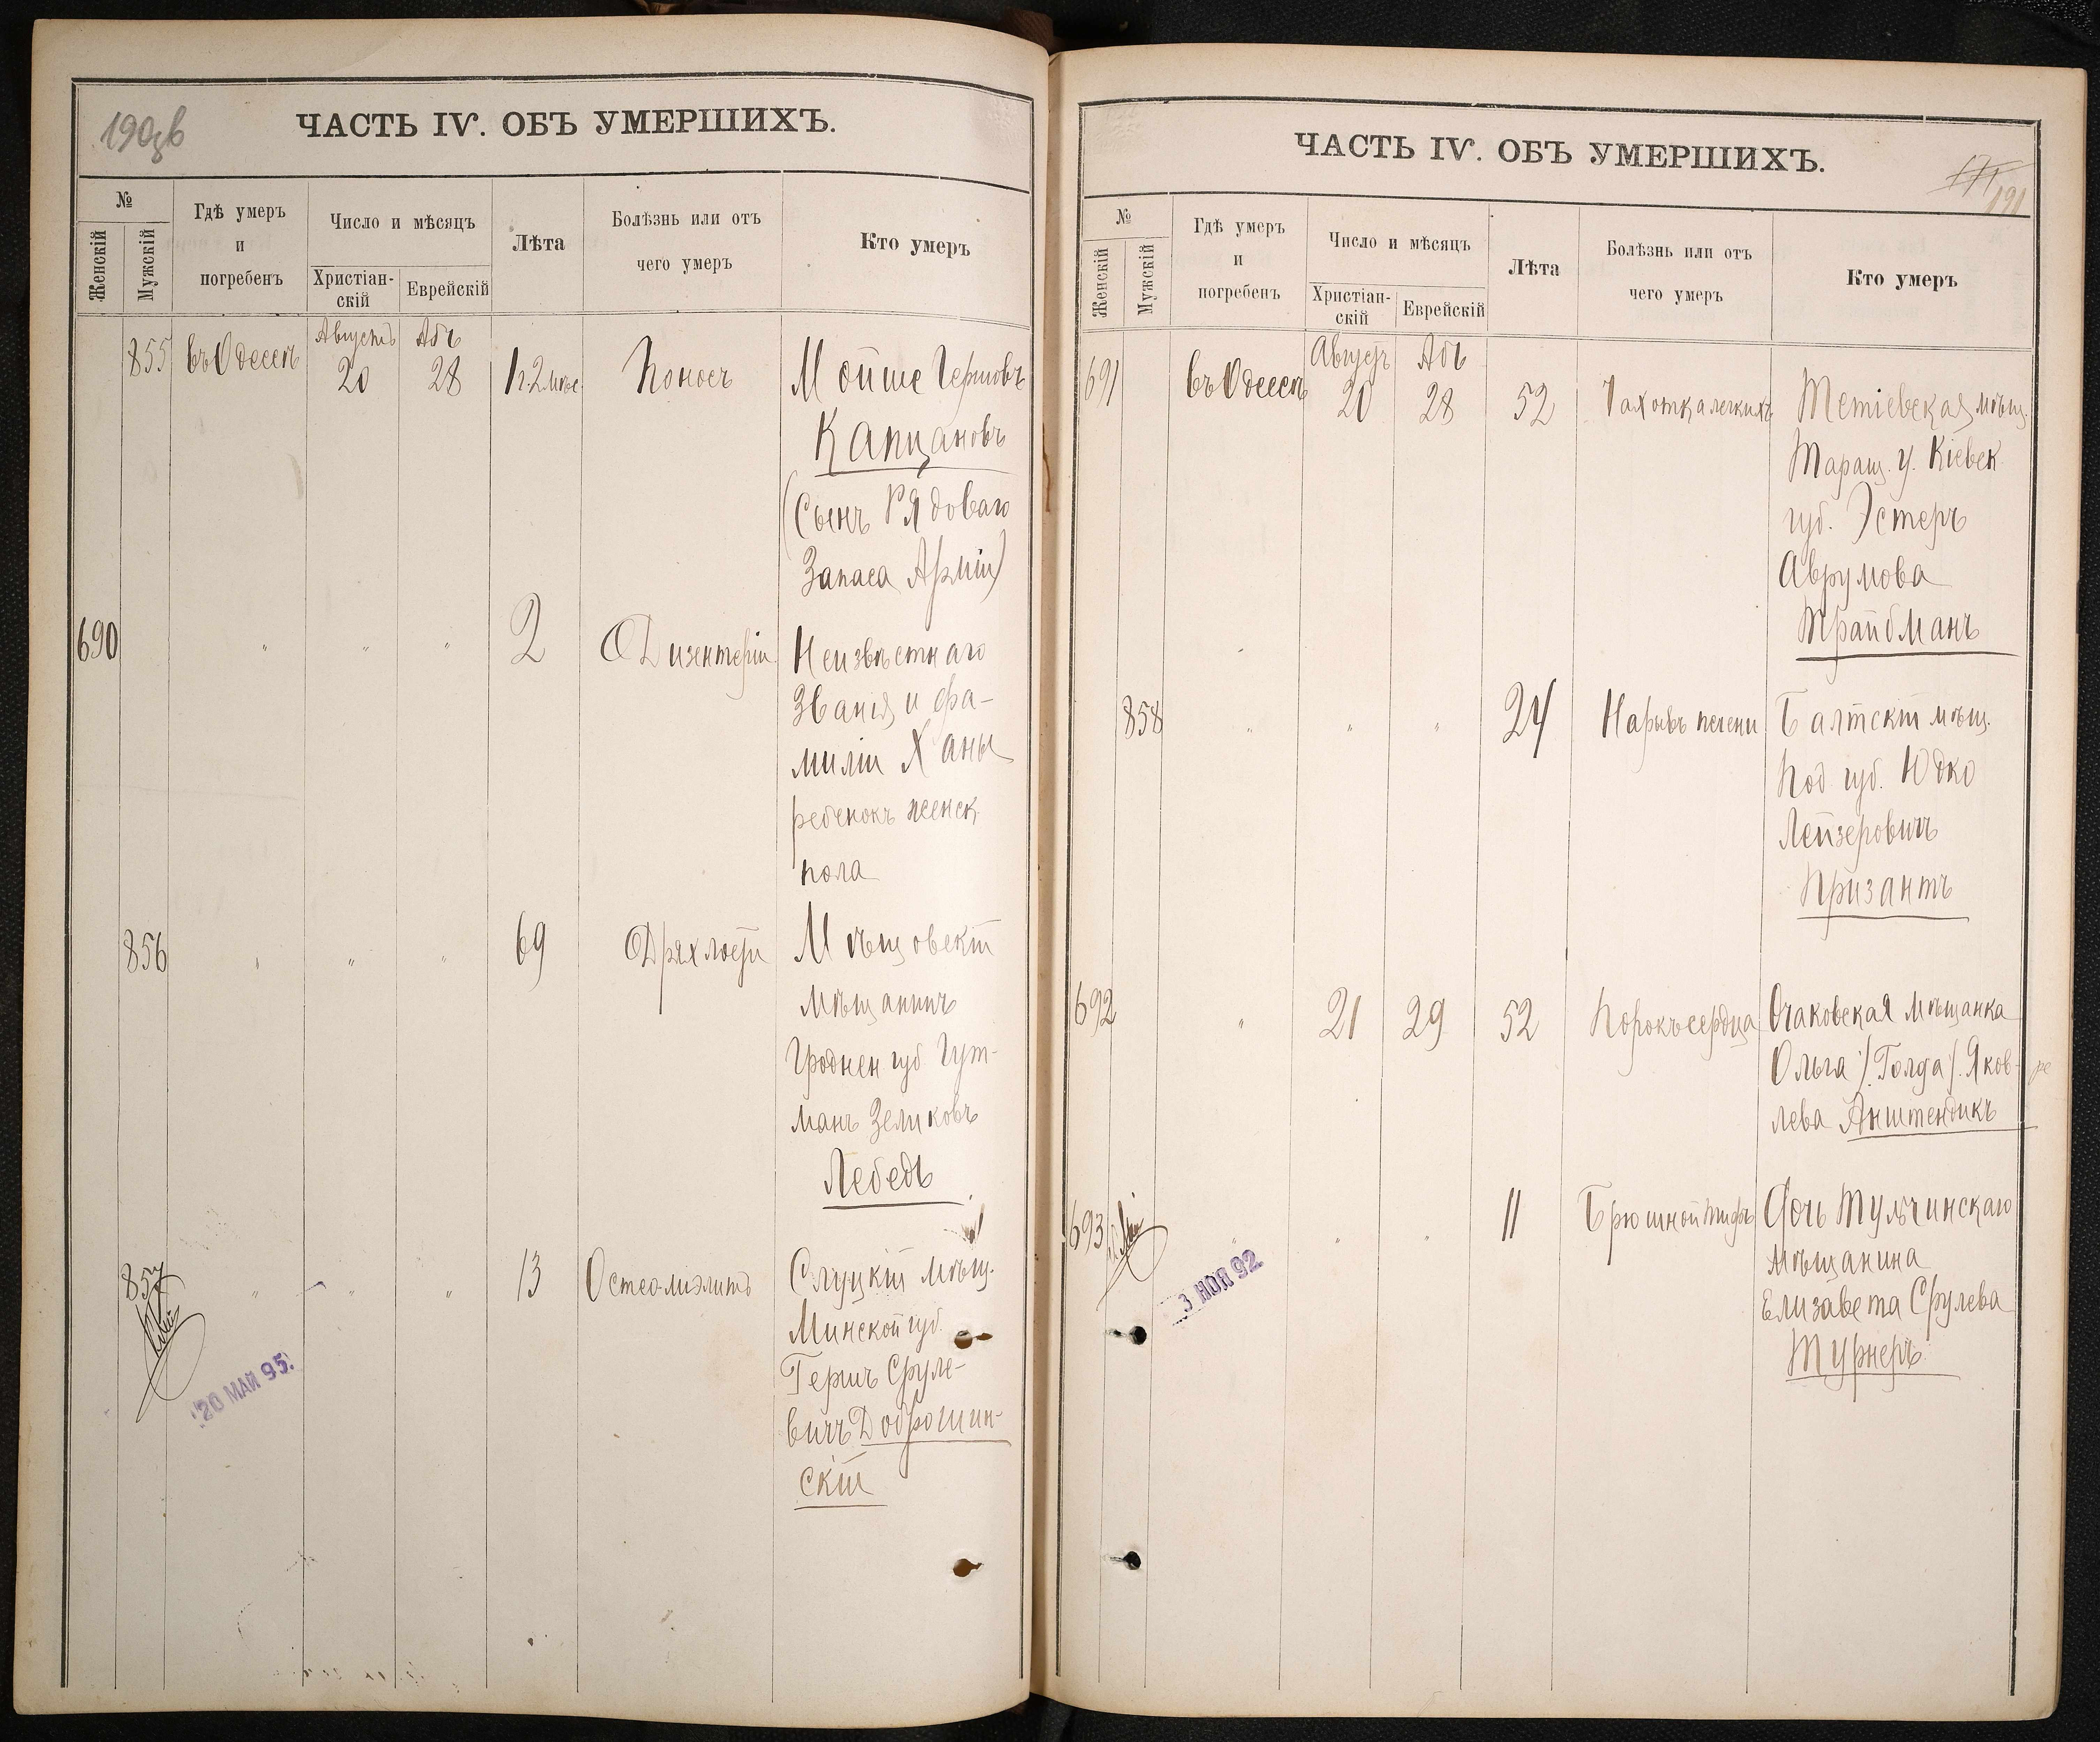 190 об
ЧАСТЬ IV. ОБЪ УМЕРШИХЪ.
№
Женскій
Мужскій
Гдѣ умеръ
и
погребенъ
Число и мѣсяцъ
Христіан-
скій
Еврейскій
Лѣта
Болѣзнь или отъ
чего умеръ
Кто умеръ
Августъ Абъ
855 въ Одессѣ 20 28 2 мѣс Поносъ Мойше Гершовъ
Капцановъ
(Сынъ Рядоваго
Запаса Арміи)
690 " " " 2 Дизентерія Неизвѣстнаго
Званія и фа-
миліи Ханы
ребенокъ женск.
пола
856 " " " 69 Дряхлости Мѣщовскій
мѣщанинъ
Гроднен губ Гут-
манъ Зеликовъ
Лебедь
857 " " " 13 Остео-міэлитъ Слуцкій мѣщ.
Минской губ.
Гершъ Сруле-
вичъ Доброшин-
скій
20 МАЙ 95.
ЧАСТЬ IV. ОБЪ УМЕРШИХЪ.
171
191
№
Женскій
Мужскій
Гдѣ умеръ
и
погребенъ
Число и мѣсяцъ
Христіан-
скій
Еврейскій
Лѣта
Болѣзнь или отъ
чего умеръ
Кто умеръ
Августъ Абъ
691 въ Одессѣ 20 28 52 Чахотка легкихъ Тетіевская мѣщ.
Таращ. у. Кіевск.
губ. Эстеръ
Аврумова
Трайбманъ
858 " " " 24 Нарывъ печени Балтскій мѣщ.
Под губ. Юдко
Лейзеровичъ
Призантъ
692 " 21 29 52 Порокъ сердца Очаковская мѣщанка
Ольга /Голда/ Яков-
лева Анштендикъ
693 " " " 11 Брюшной тифъ Дочь Тульчинскаго
мѣщанина
Елизавета Срулева
Турнеръ
3 НОЯ 92